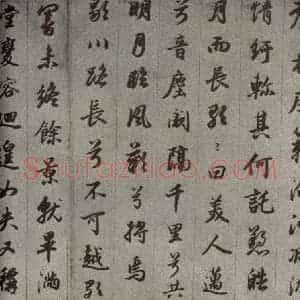 情紆軫其何託愬皓
月而長歌〻曰美人邁
兮音塵闕隔千里兮共
明月臨風歎兮將焉
歇川路長兮不可越歌
響未終餘景就畢滿
堂變容迴遑如失又稱